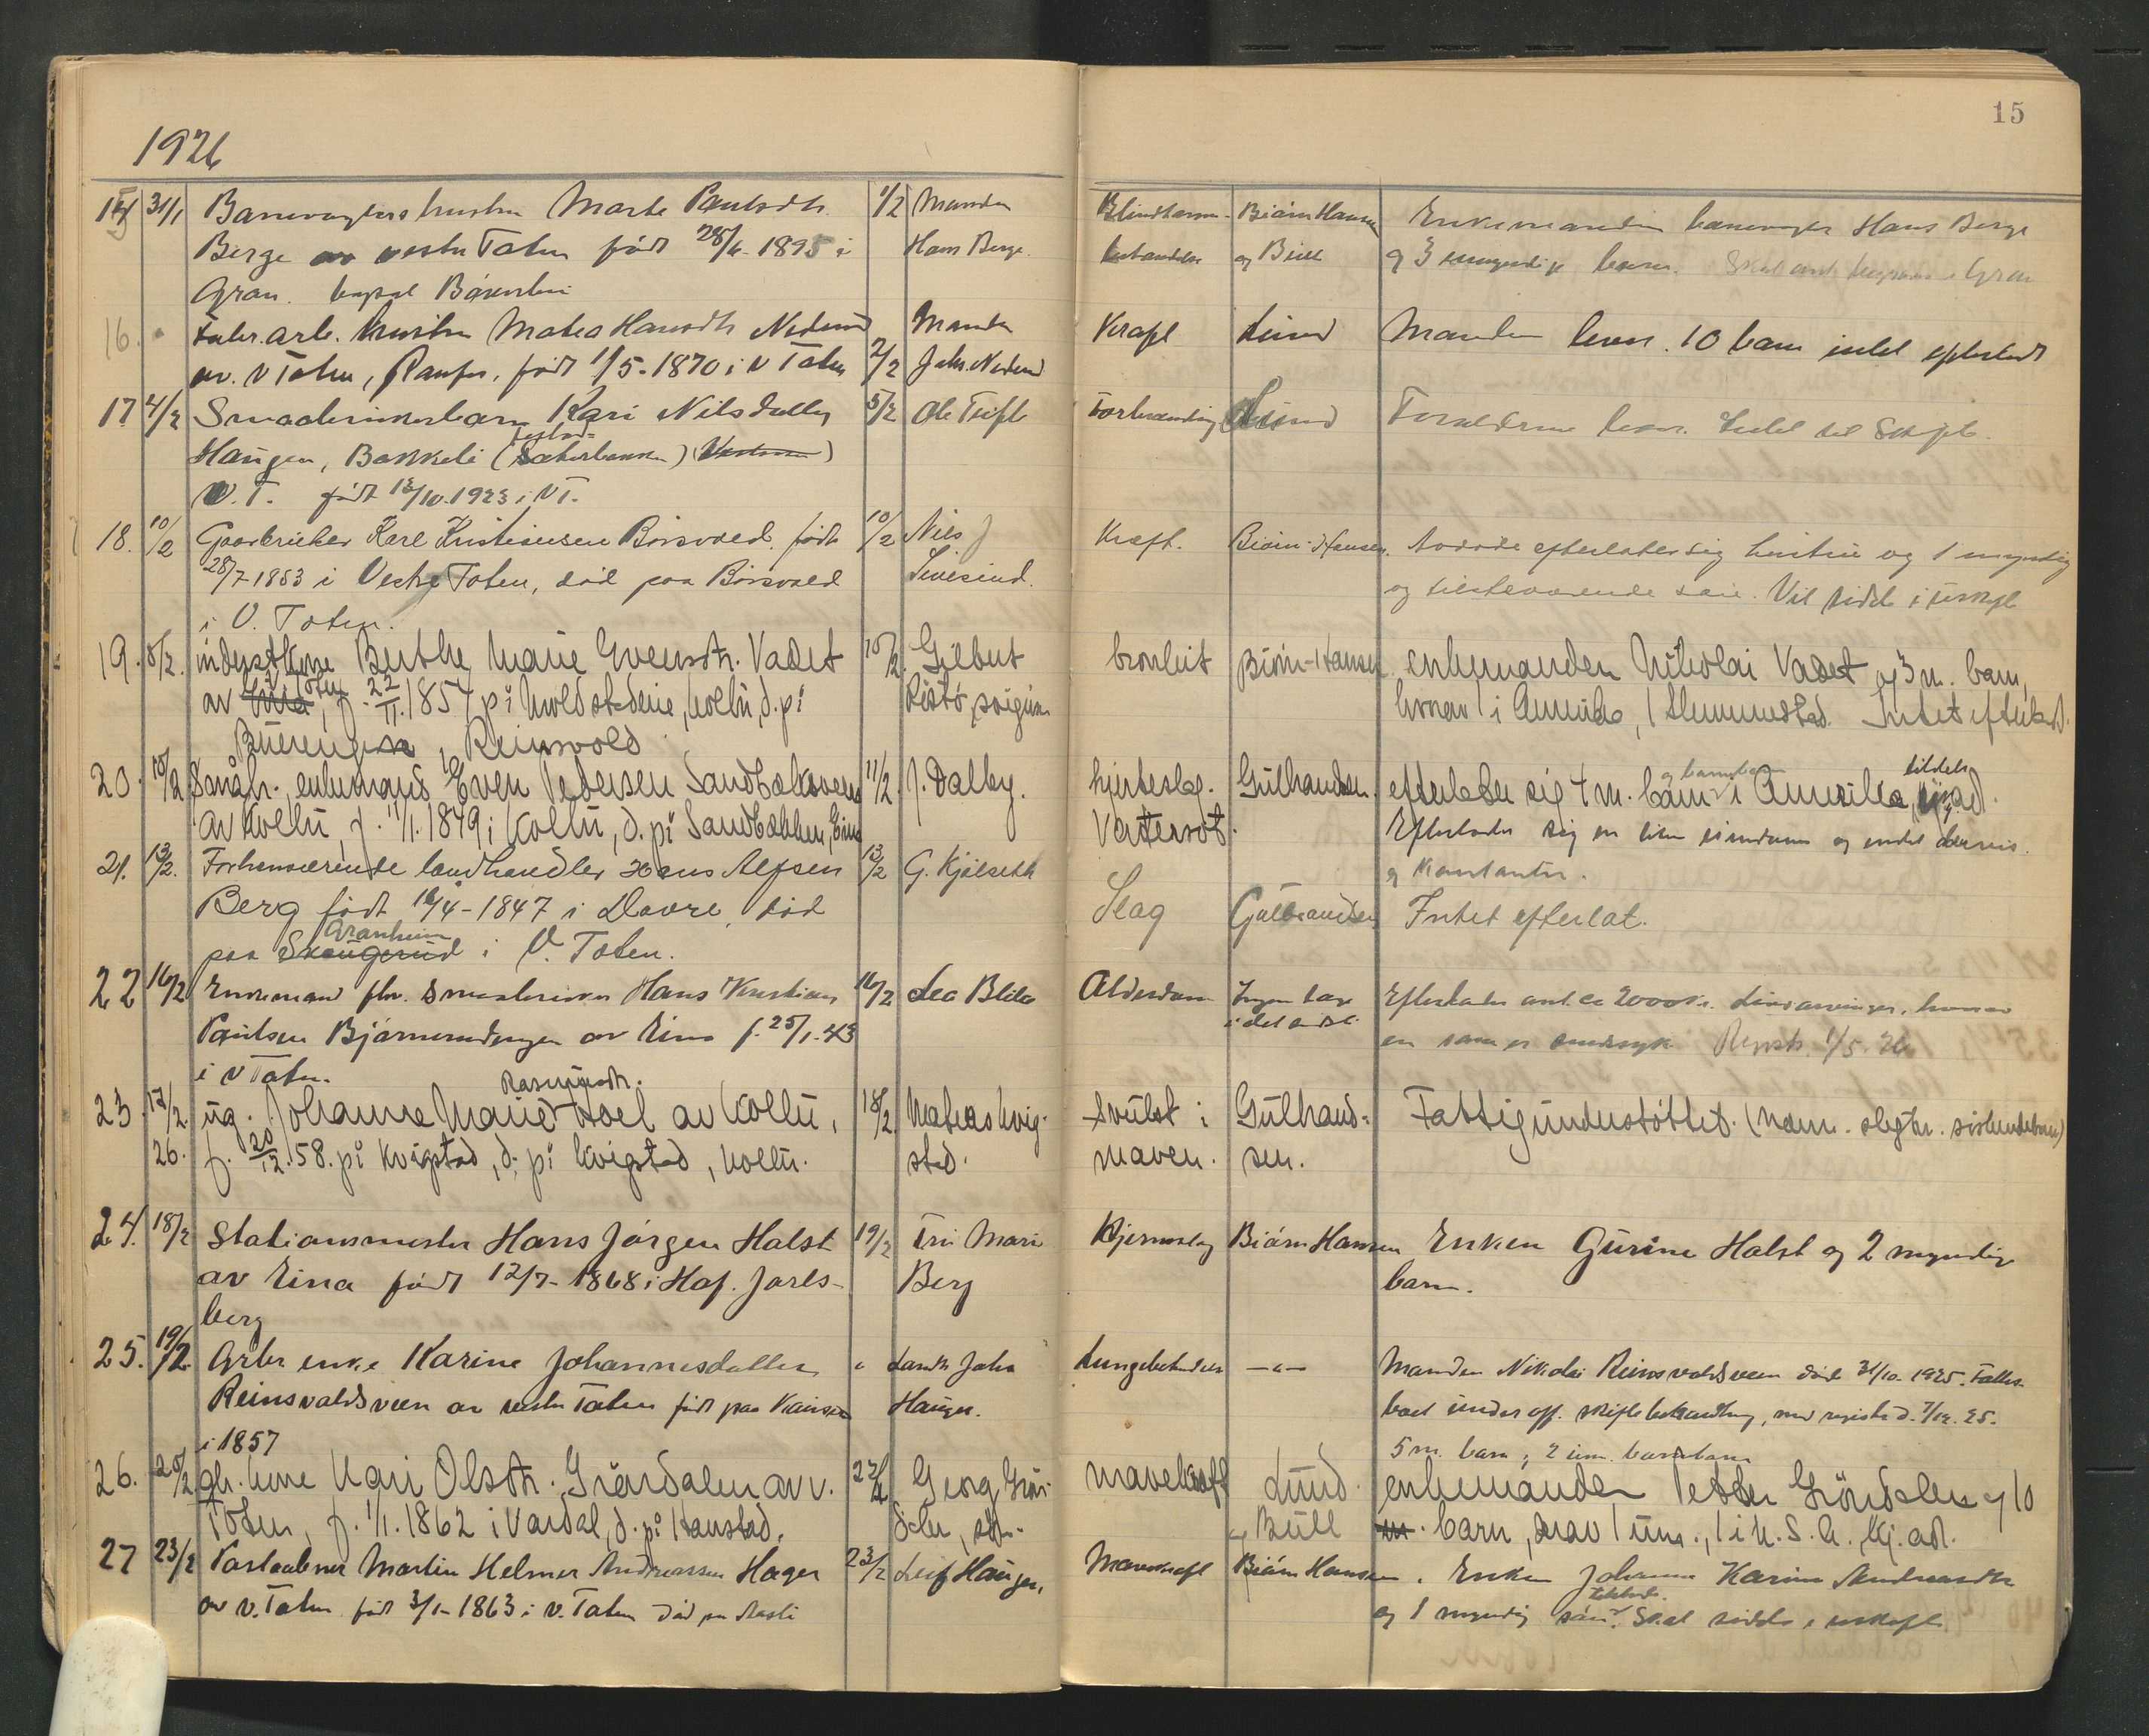 15
1926
15 31/1 Banevogters hustru Marte Paulsdtr. 1/2 Manden
Berge av vestre Toten født 28/6-1895 i Hans Berge
Gran. bopæl Bøverbru
16. " Fabr. arb. hustru Matea Hansdtr Nedrud Manden
av. V Toten, Raufos, født 1/5-1870 i V Toten 2/2 Johs. Nedrud
17 4/2 Smaabrukerbarn Kari Nilsdatter 5/2 Ole Teifle
Haugen, Bakkeli (Sæterbakken)
V.T. født 13/10.1923 i VT.
18. 10/2 Gaardbruker Karl Kristiansen Børsvold født 10/2 Nils J
28/7-1853 i Vestre Toten, død paa Børsvold
i V. Toten.
19. 8/2. inderstkone Berthe Marie Evensdtr. Vadet 10/2. Gilbert
av V Toten, f. 22/11.1857 på, Kolbu, d. på
, Reinsvold
20. 10/2 Småbr., enkemand Even Pedersen Sandbæksveen 11/2 J. Dalby.
av Kolbu, f. 11/1.1849 i Kolbu, d. på Sandbækken, Eina
21. 13/2. Forhenværende landhandler Hans Alfsen 13/2 G. Kjølseth
Berg født 16/4-1847 i Dovre, død
Granheim
paa Skaugerud i V. Toten.
22 16/2 Enkemand fhv. Smaabruker Hans Kristian 16/2 Lea Blili
Paulsen Bjørnerudengen av Eina f. 25/1-43
i V Toten.
Rasmusdtr.
23 17/2. ug. Johanne Marie Hoel av Kolbu, 18/2 Mateas Kvig-
26. f. 20/12.58. på Kvigstad, d. på Kvigstad, Kolbu. stad.
24. 18/2 Stationsmester Hans Jørgen Halst 19/2 Fru Mari
av Eina født 12/7-1868 i Hof. Jarls- Berg
berg
25. 19/2. Arbr enke Karine Johannesdatter " Landh John
Reinsvoldsveen av vestre Toten født paa Haugen.
i 1857
26. 20/2 gbr. kone Kari Olsdtr. Grøndalen av V. 22/2 Georg Grøn-
Toten, f. 1/1.1862 i Vardal, d. på Hanstad. dalen, søn.
27 23/2 Postaabner Martin Helmer Andreassen Hager 23/2 Leif Haugen,
av V. Toten født 3/1-1863 i V. Toten død paa
Blindtarm- Biørn Hansen Enkemanden banevogter Hans Berge
betændelse og Bull og 3 umyndige barn. Skal begraves i Gran
Kræft Lund Manden lever. 10 barn intet efterladt
Lund Forældrene lever. Intet til Skifte.
Kræft. Biørn-Hansen. Avdøde efterlater sig hustru og 1 myndig
og tilstedeværende søn. Vil sidde i uskifte
bronkit Biørn-Hansen enkemanden Nikolai Vadet og 3 m. barn,
hvorav 1 i Amerika, 1 Slemmestad. Intet efterladt.
hjerteslag. Gulbrandsen. efterlater sig 4 m. barn og barnebarn i Amerika, tildels
Vattersot. Efterlader sig en liten eiendom og endel
og kontanter.
Slag Gulbrandsen Intet efterlat.
Alderdom Ingen læge Efterlader ant. ca 2000 kr. Livsarvinger, hvorav
i det sidste en som er sindssyk Registr. 1/5. 26
Svulst i Gulbrand- Fattigunderstøttet. (nærm. slegtn. søskendebarn)
maven. sen.
Hjerneslag Biørn Hansen Enken Gurine Halst og 2 myndige
barn.
Lungebetændelse -"- Manden Nikolai Reinsvoldsveen død 31/10-1925. Fælles-
boet under off. skiftebehandling, med registr d. 7/12.25.
5 m. barn; 2 um. barnebarn
mavekræft Lund enkemanden Peder Grøndalen og 10
og Bull barn, hvorav 1 um., 1 i U.S.A., kj. ad.
Mavekræft Biørn Hansen. Enken Johanne Karine Andreasdtr
og 1 myndig søn. Skal sidde i uskifte